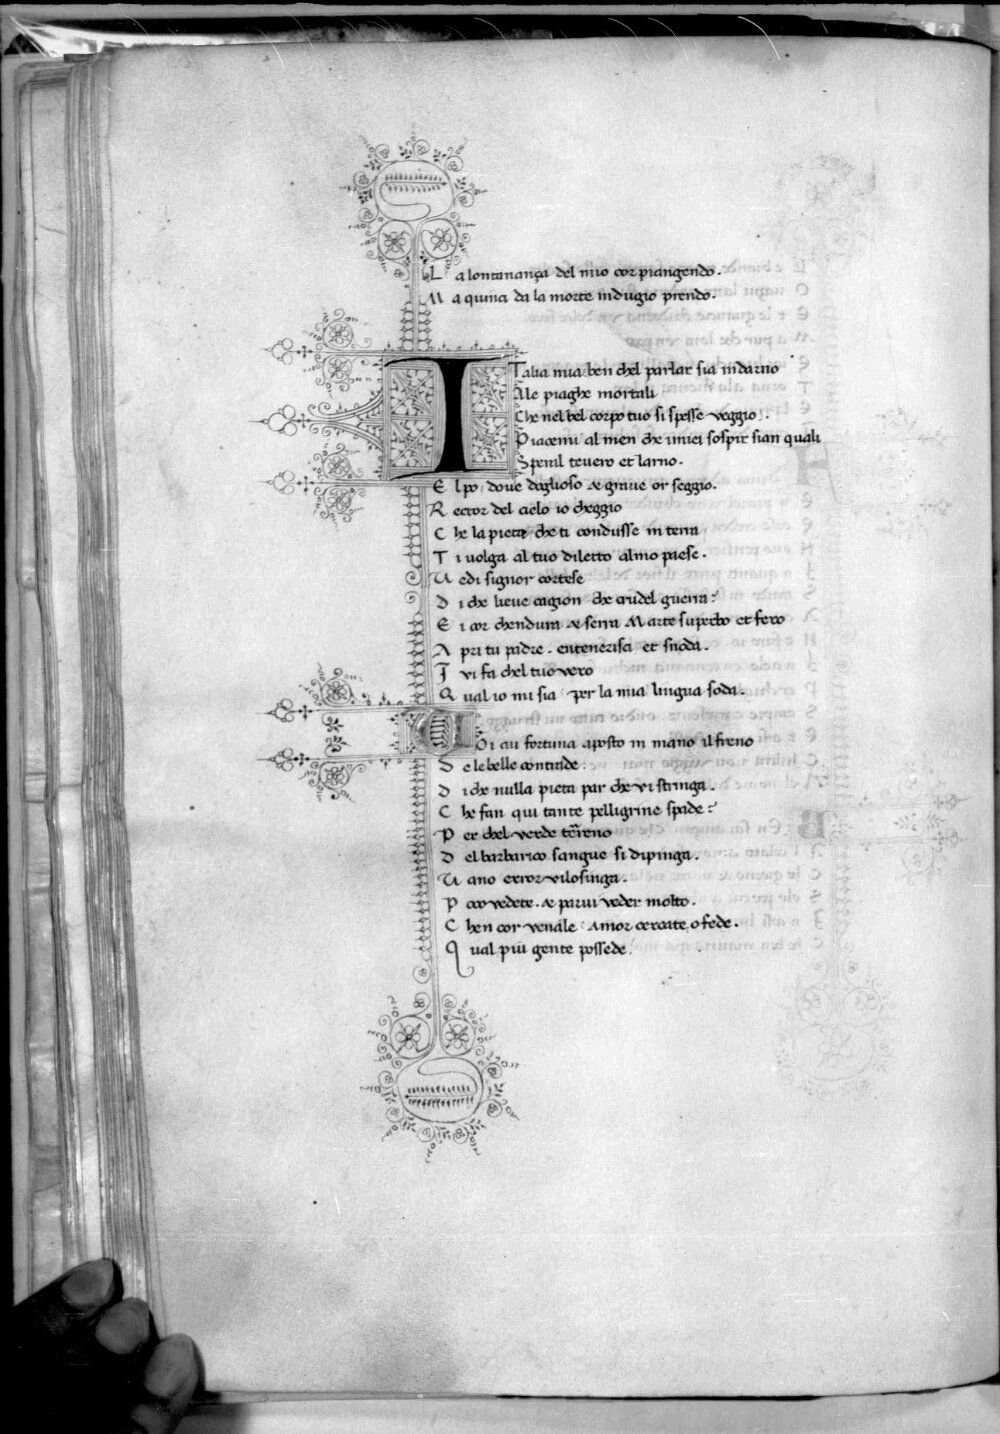 L a lontanança del mio cor piangendo.
M a quinci da la morte indugio prendo.
ITalia mia ben chel parlar sia indarno
Ale piaghe mortali
Che nel bel corpo tuo si spesse veggio.
Piacemi al men che imiei sospir sian quali
Speril tevero et larno.
E l po dove doglioso & grave or seggio.
R ector del cielo io cheggio
C he la pieta che ti condusse in terra
T i volga al tuo dilecto almo paese.
V edi signor cortese
D i che lieve cagion che crudel guerra?
E i cor chendura & serra Marte superbo et fero
A pri tu padre. entenerisci et snoda.
I vi fa chel tuo vero
Q ual io mi sia per la mia lingua soda.
VOi cui fortuna aposto in mano il freno
D e le belle contrade.
D i che nulla pieta par che vi stringa.
C he fan qui tante pelligrine spade?
P er chel verde terreno
D el barbarico sangue si dipinga.
V ano error vi losinga.
P oco vedete. & parvi veder molto.
C hen cor venale Amor cercate, o fede.
Q ual piu gente possede.